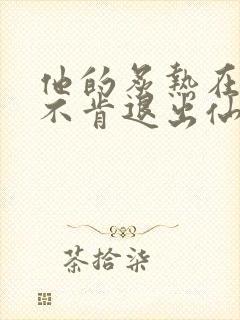 他的炙热在
不肯退出仙
茶拾柒